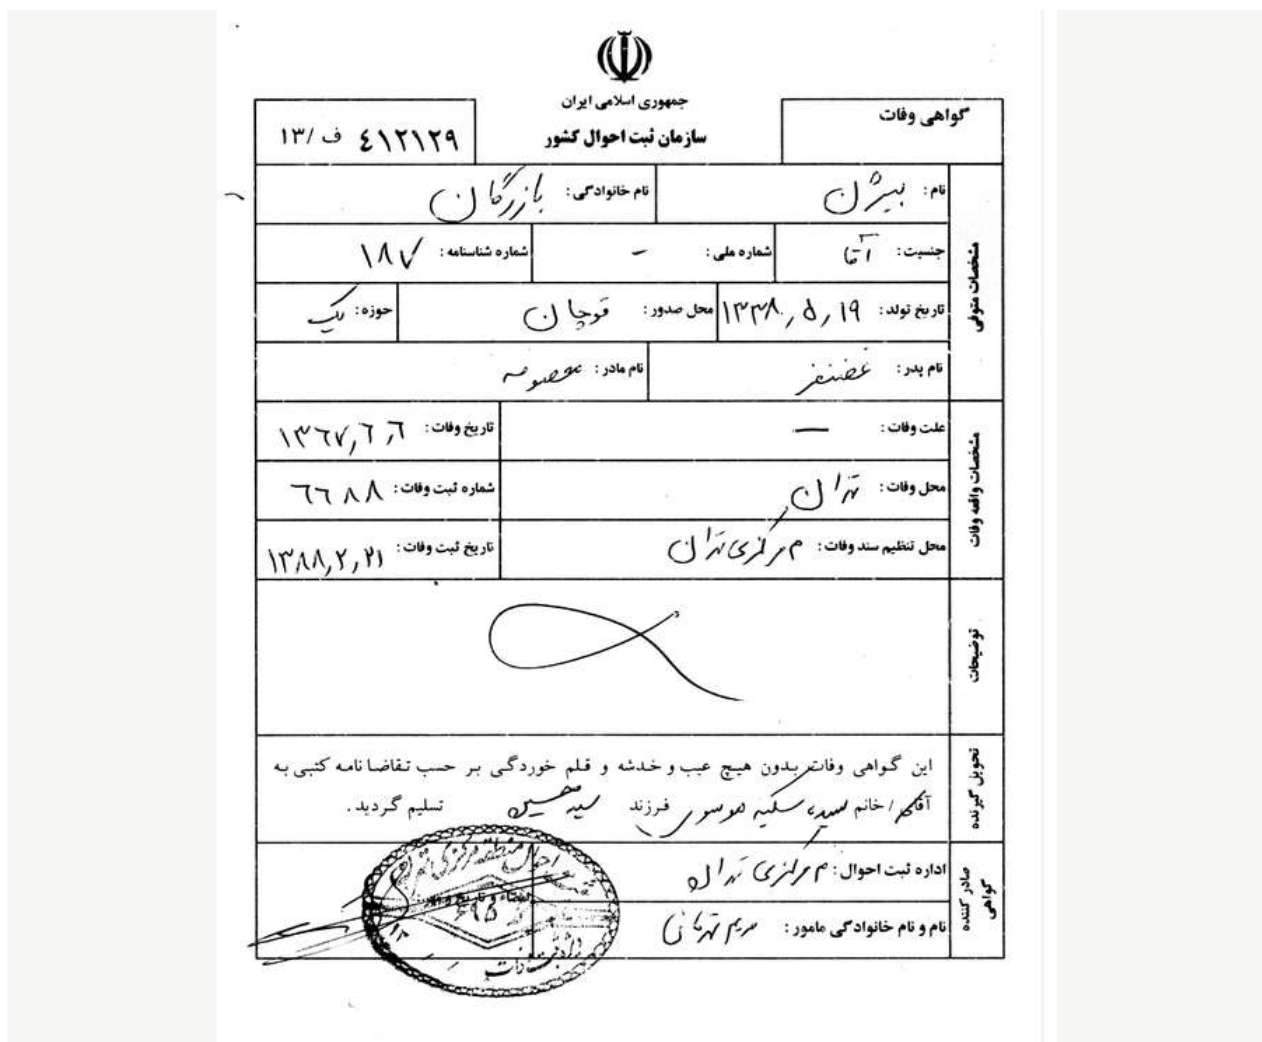 جمهوری اسلامی ایران
سازمان ثبت احوال کشور
گواهی وفات
۴۱۲۱۲۹ ف /۱۳
مشخصات متوفی
نام: بیژن نام خانوادگی: بازرگان
جنسیت: آقا شماره ملی: - شماره شناسنامه: ۱۸۷
تاریخ تولد: ۱۳۳۸,۵,۱۹ محل صدور: قوچان حوزه: یک
نام پدر: غضنفر نام مادر: معصومه
مشخصات واقعه وفات
علت وفات: — تاریخ وفات: ۱۳۶۷,۶,۶
محل وفات: تهران شماره ثبت وفات: ۶۶۸۸
محل تنظیم سند وفات: م مرکزی تهران تاریخ ثبت وفات: ۱۳۸۸,۲,۲۱
توضیحات
تحویل گیرنده
این گواهی وفات بدون هیچ عیب و خدشه و قلم خوردگی بر حسب تقاضا نامه کتبی به
آقای/خانم سیده سکینه موسوی فرزند سید حسین تسلیم گردید.
صادر کننده گواهی
اداره ثبت احوال: م مرکزی تهران
نام و نام خانوادگی مامور: مریم تهرانی
امضاء و تاریخ و مهر
احوال منطقه مرکزی تهران